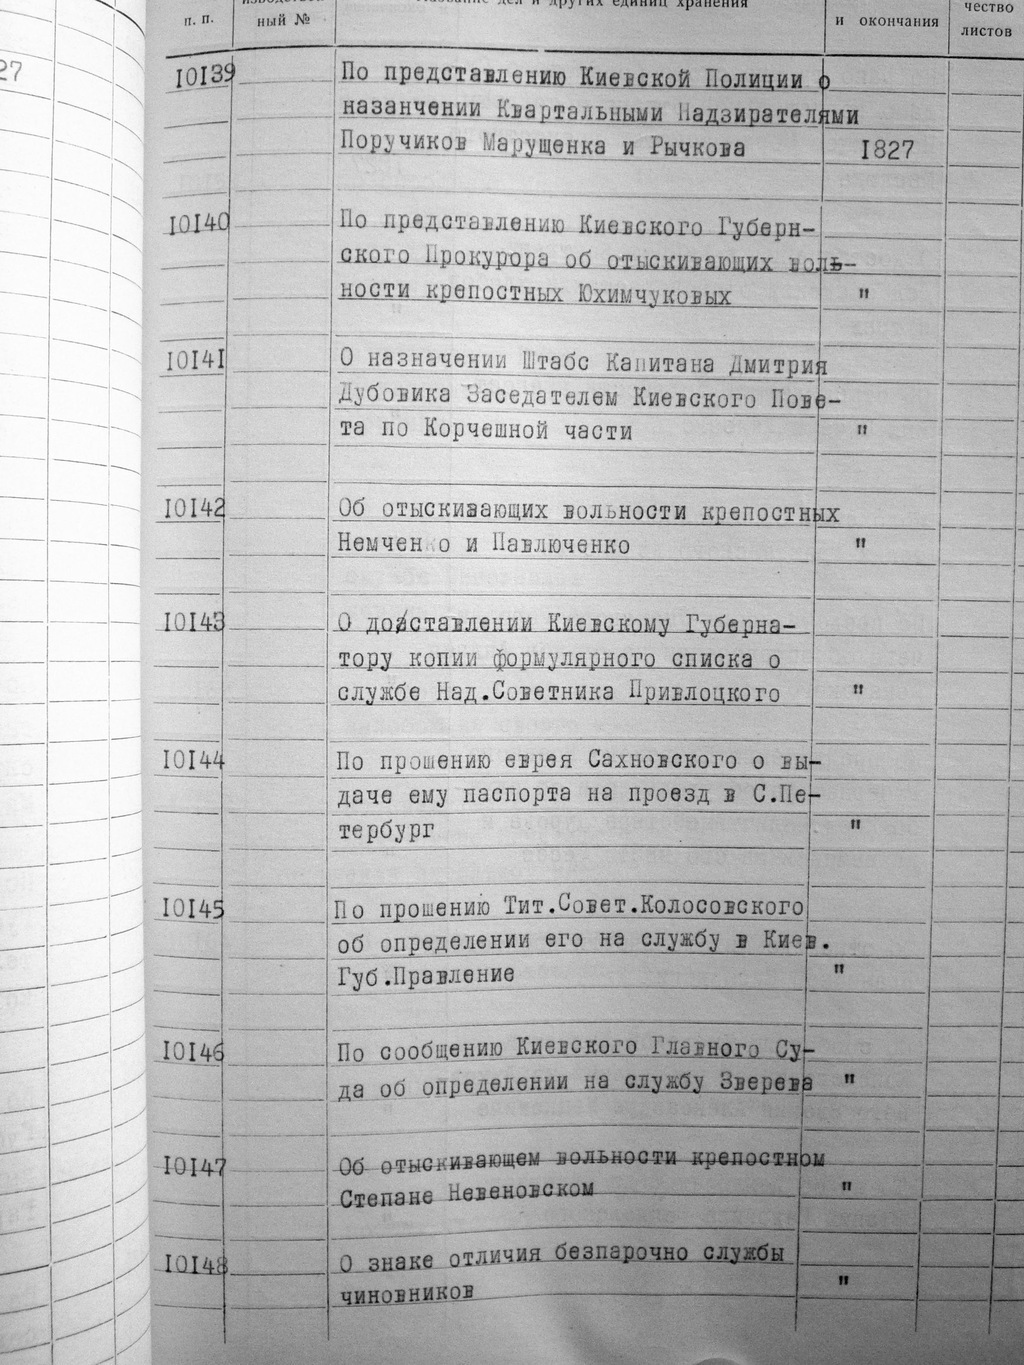 п. п.
ный №
Название дел и других единиц хранения
и окончания
чество
листов
27
10139
По представлению Киевской Полиции о
назанчении Квартальными Надзирателями
Поручиков Марущенка и Рычкова 1827
10140
По представлению Киевского Губерн-
ского Прокурора об отыскивающих воль-
ности крепостных Юхимчуковых "
10141
О назначении Штабс Капитана Дмитрия
Дубовика Заседателем Киевского Пове-
та по Корчешной части "
10142
Об отыскивающих вольности крепостных
Немченко и Павлюченко "
10143
О доставлении Киевскому Губерна-
тору копии формулярного списка о
службе Над.Советника Привлоцкого "
10144
По прошению еврея Сахновского о вы-
даче ему паспорта на проезд в С.Пе-
тербург "
10145
По прошению Тит.Совет.Колосовского
об определении его на службу в Киев.
Губ.Правление "
10146
По сообщению Киевского Главного Су-
да об определении на службу Зверева "
10147
Об отыскивающем вольности крепостном
Степане Невеновском "
10148
О знаке отличия безпарочно службы
чиновников "